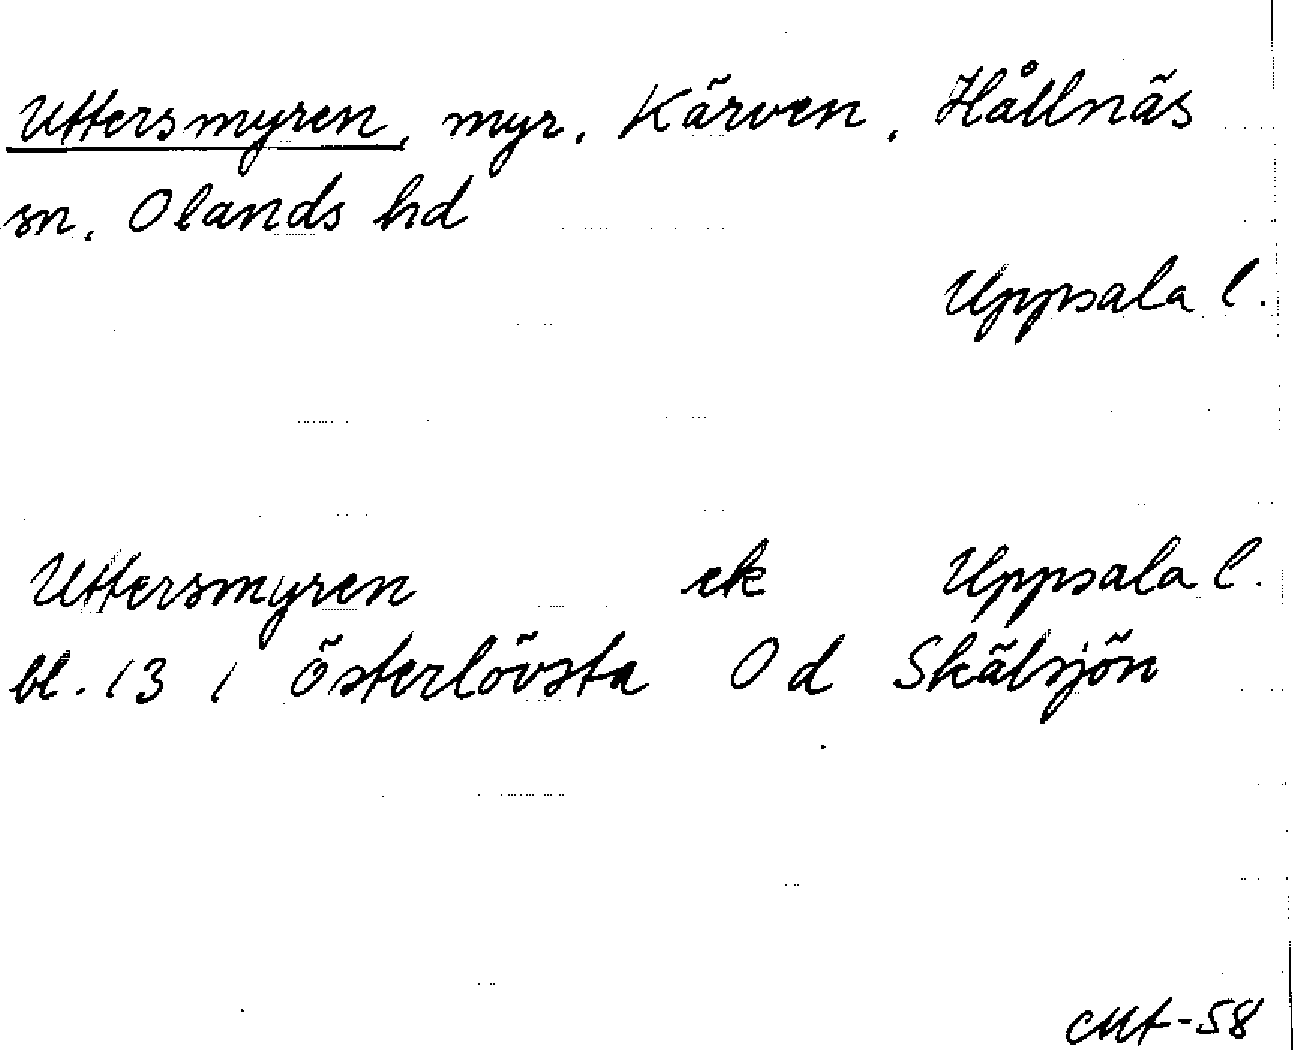 Uttersmyren, myr. Kärven, Hållnäs
sn, Olands hd
Uppsala l.
Uttersmyren ek Uppsala l.
bl. 13 i Österlövsta Od Skälsjön